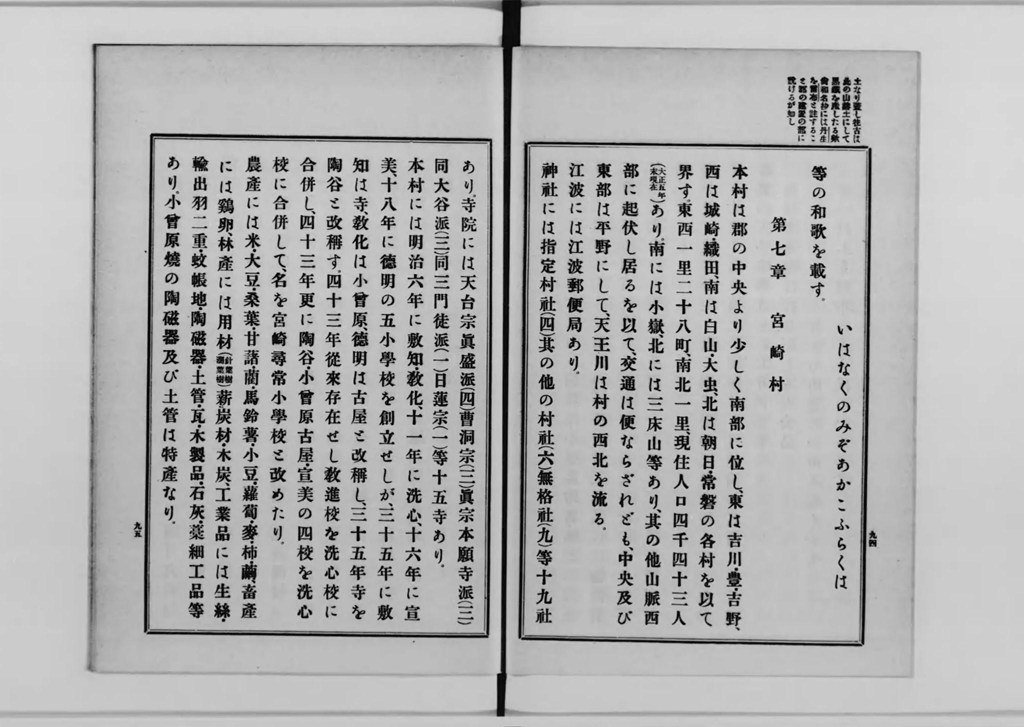 土なり蓋し往古は
此の山赭土にして
を產したる歟
倭和名抄には丹生
いはなくのみぞあかこふらくは
等の和歌を載す。
第七章　宮崎村
本村は郡の中央より少しく南部に位し、東は吉川・豊・吉野、
西は城崎織田、南は白山・大虫、北は朝日・常磐の各村を以て
界す、東西一里二十八町、南北一里、現住人口四千四十三人
(大正五年末現在)あり、南には小嶽、北には三床山等あり、其の他山脈西
部に起伏し居るを以て、交通は便ならざれども、中央及び
東部は平野にして、天王川は村の西北を流る。
江波には江波郵便局あり。
神社には指定村社(四)其の他の村社(六)無格社(九)等十九社
九四
あり、寺院には天台宗眞盛派(四)曹洞宗(三)眞宗本願寺派(三)
同大谷派(三)同三門徒派(一)日蓮宗(一)等十五寺あり。
本村には明治六年に敷知・敎化十一年に洗心、十六年に宣
美、十八年に德明の五小學校を創立せしが、三十五年に敷
知は寺敎化は小曾原、德明は古屋と改稱し、三十五年寺を
陶谷と改稱す四十三年從來存在せし敎進校を洗心校に
合併し、四十三年更に陶谷小曾原古屋・宣美の四校を洗心
校に合併して、名を宮崎尋常小學校と改めたり。
農產には米・大豆・桑葉・甘諸・藺・馬鈴薯・小豆・蘿蔔・麥・柿・繭、畜產
には鷄卵、林產には用材(針葉樹濶葉樹)薪炭材・木炭、工業品には生絲・
輸出羽二重・蚊帳地・陶磁器・土管・瓦・木製品・石灰・藁細工品等
あり。小曾原燒の陶磁器及び土管は特產なり。
九五